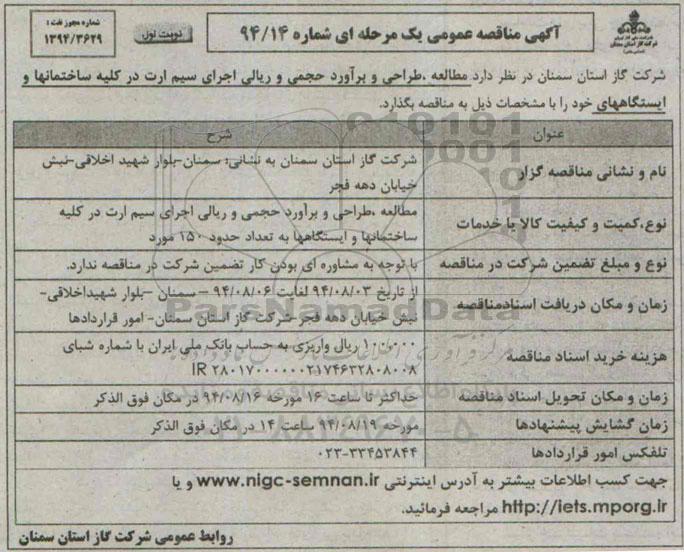 شرکت ملی گاز ایران
شرکت گاز استان سمنان
آگهی مناقصه عمومی یک مرحله ای شماره ۹۴/۱۴
نوبت اول
شماره مجوز نفت :
۱۳۹۴/۳۶۲۹
شرکت گاز استان سمنان در نظر دارد مطالعه ،طراحی و برآورد حجمی و ریالی اجرای سیم ارت در کلیه ساختمانها و
ایستگاههای خود را با مشخصات ذیل به مناقصه بگذارد.
عنوان
شرح
نام و نشانی مناقصه گزار
شرکت گاز استان سمنان به نشانی: سمنان-بلوار شهید اخلاقی-نبش
خیابان دهه فجر
نوع،کمیت و کیفیت کالا یا خدمات
مطالعه ،طراحی و برآورد حجمی و ریالی اجرای سیم ارت در کلیه
ساختمانها و ایستگاهها به تعداد حدود ۱۵۰ مورد
نوع و مبلغ تضمین شرکت در مناقصه
با توجه به مشاوره ای بودن کار تضمین شرکت در مناقصه ندارد.
زمان و مکان دریافت اسنادمناقصه
از تاریخ ۹۴/۰۸/۰۳ لغایت ۹۴/۰۸/۰۶ – سمنان –بلوار شهیداخلاقی-
نبش خیابان دهه فجر-شرکت گاز استان سمنان- امور قراردادها
هزینه خرید اسناد مناقصه
۱۰۰،۰۰۰ ریال واریزی به حساب بانک ملی ایران با شماره شبای
IR ۲۸۰۱۷۰۰۰۰۰۰۲۱۷۴۶۳۲۸۰۸۰۰۸
زمان و مکان تحویل اسناد مناقصه
حداکثر تا ساعت ۱۶ مورخه ۹۴/۰۸/۱۶ در مکان فوق الذکر
زمان گشایش پیشنهادها
مورخه ۹۴/۰۸/۱۹ ساعت ۱۴ در مکان فوق الذکر
تلفکس امور قراردادها
۰۲۳-۳۳۴۵۳۸۴۴
جهت کسب اطلاعات بیشتر به آدرس اینترنتی www.nigc-semnan.ir و یا
http://iets.mporg.ir مراجعه فرمائید.
روابط عمومی شرکت گاز استان سمنان
ParsNamadData